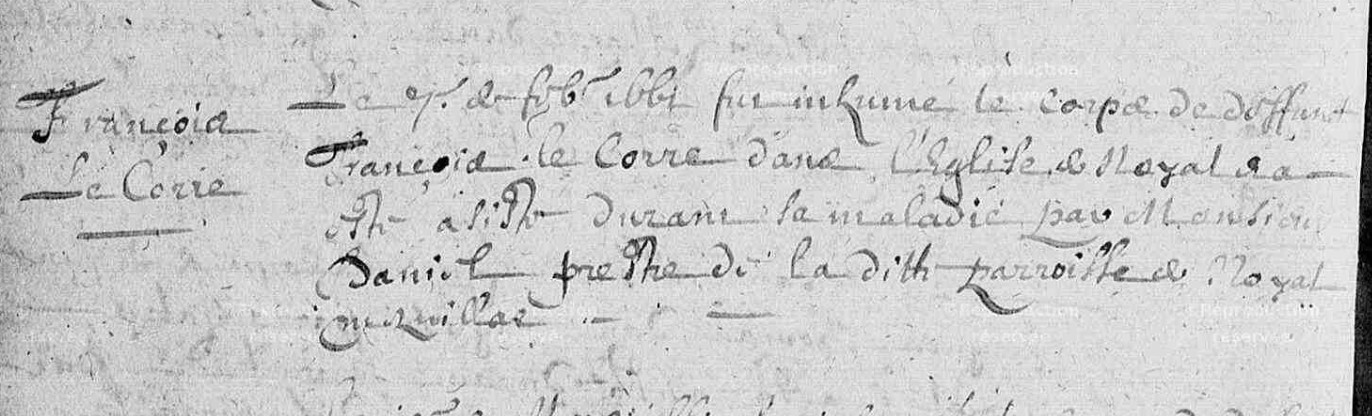 François
Le Corre
Le 7e de febr 1661 fut inhumé le corps de deffunt
François le Corre dans l'Eglise de Noyal & a
esté asisté durant sa maladie par Monsieur
Daniel prestre de la ditte parroisse de Noyal